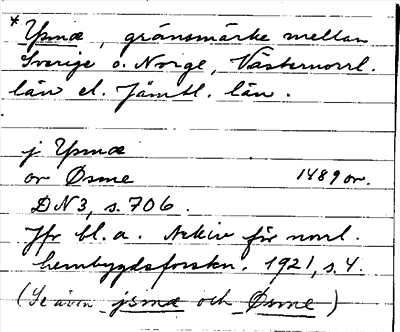 * Ysmæ, gränsmärke mellan
Sverige o. Norge, Västernorrl.
län el. Jämtl. län.
j Ysmæ
ov Øsme 1489 or.
DN3, s. 706.
Jfr bl. a. Arkiv för norrl.
hembygdsforskn. 1921, s. 4.
(Se även jsmæ och Øsme)